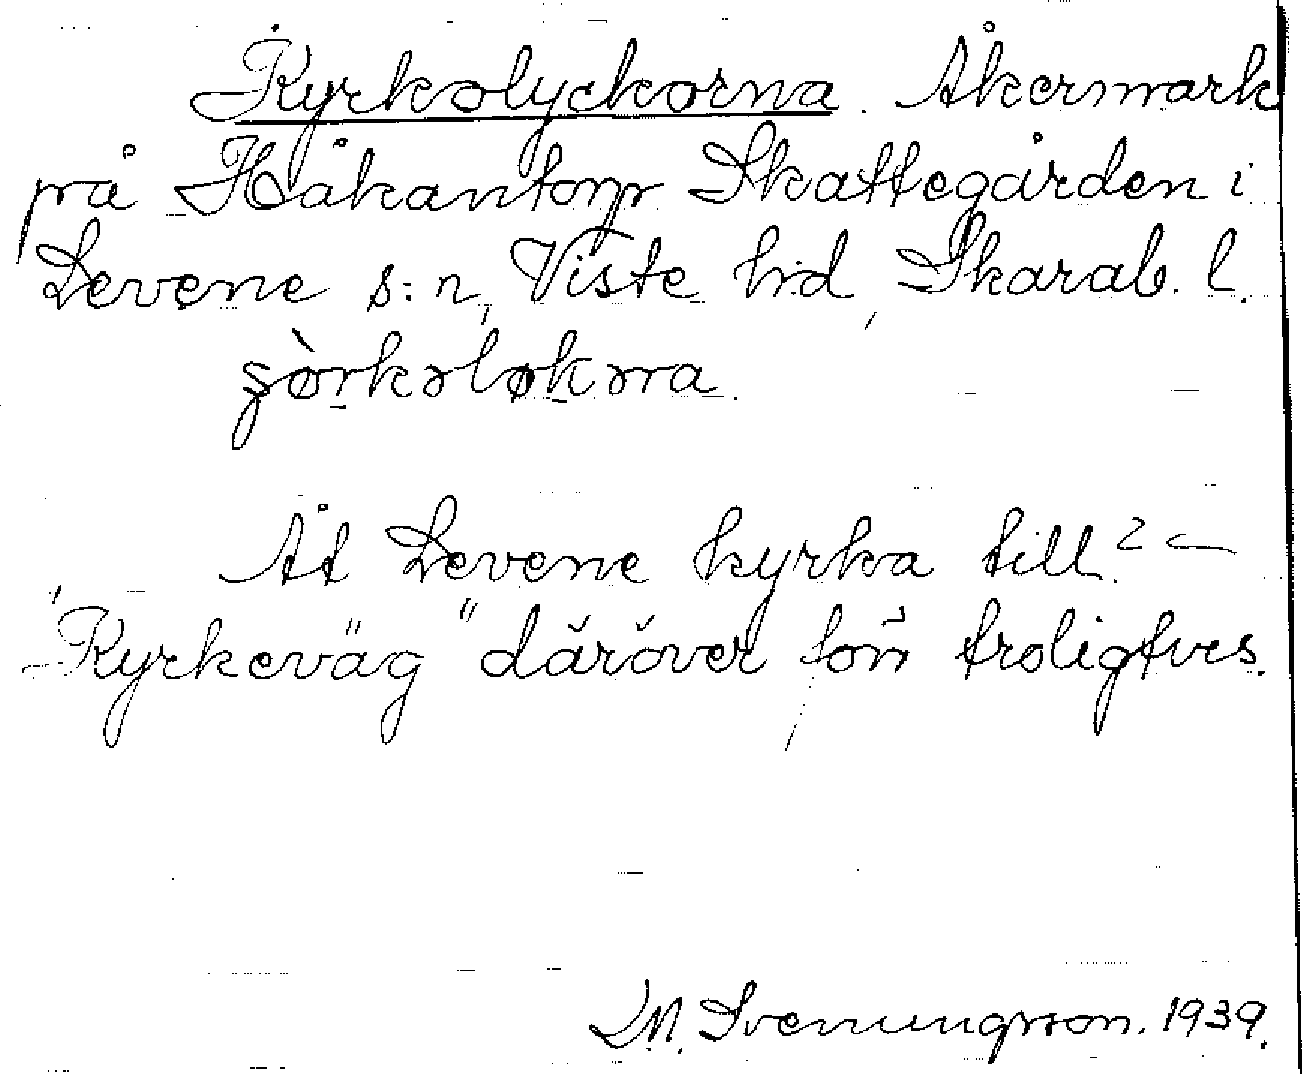 Kyrkolyckorna. Åkermark
på Håkantorp Skattegården i
Levene s:n, Viste hd, Skarab. l.
Åt Levene kyrka till? —
"Kyrkeväg" däröver förr troligtvis.
M. Svenungsson. 1939.